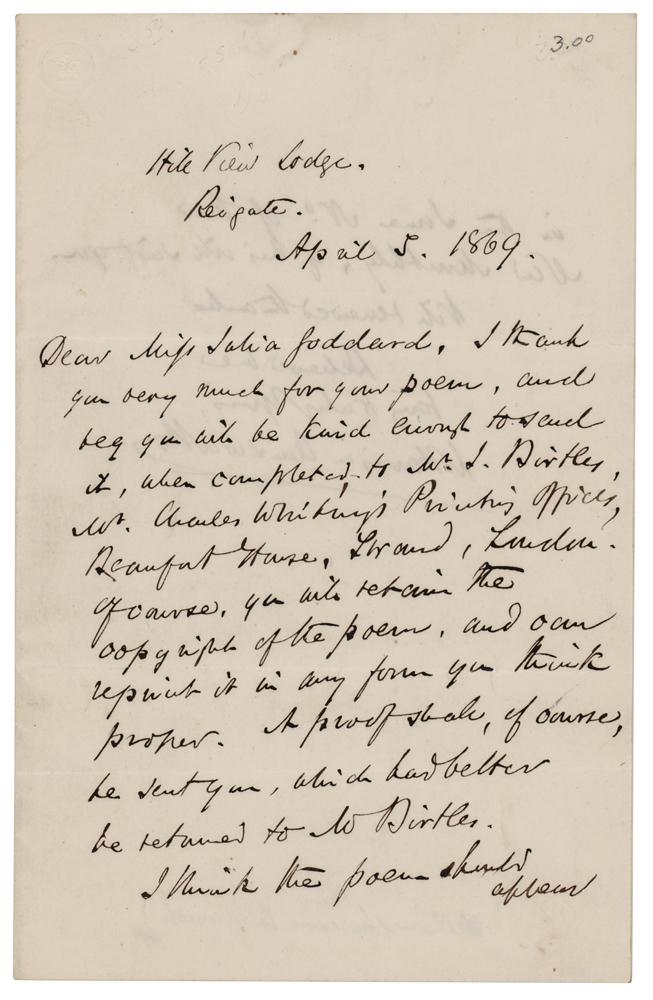 3.00
Hill View Lodge.
Reigate.
April 5. 1869.
Dear Miss Julia Goddard, I thank
you very much for your poem, and
beg you will be kind enough to send
it, when completed, to Mr. J. Birtles,
Mr. Charles Whiting's Printing Offices,
Beaufort House, Strand, London.
Of course, you will retain the
copyright of the poem, and can
reprint it in any form you think
proper. A proof shall, of course,
be sent you, which had better
be returned to Mr Birtles.
I think the poem should
appear